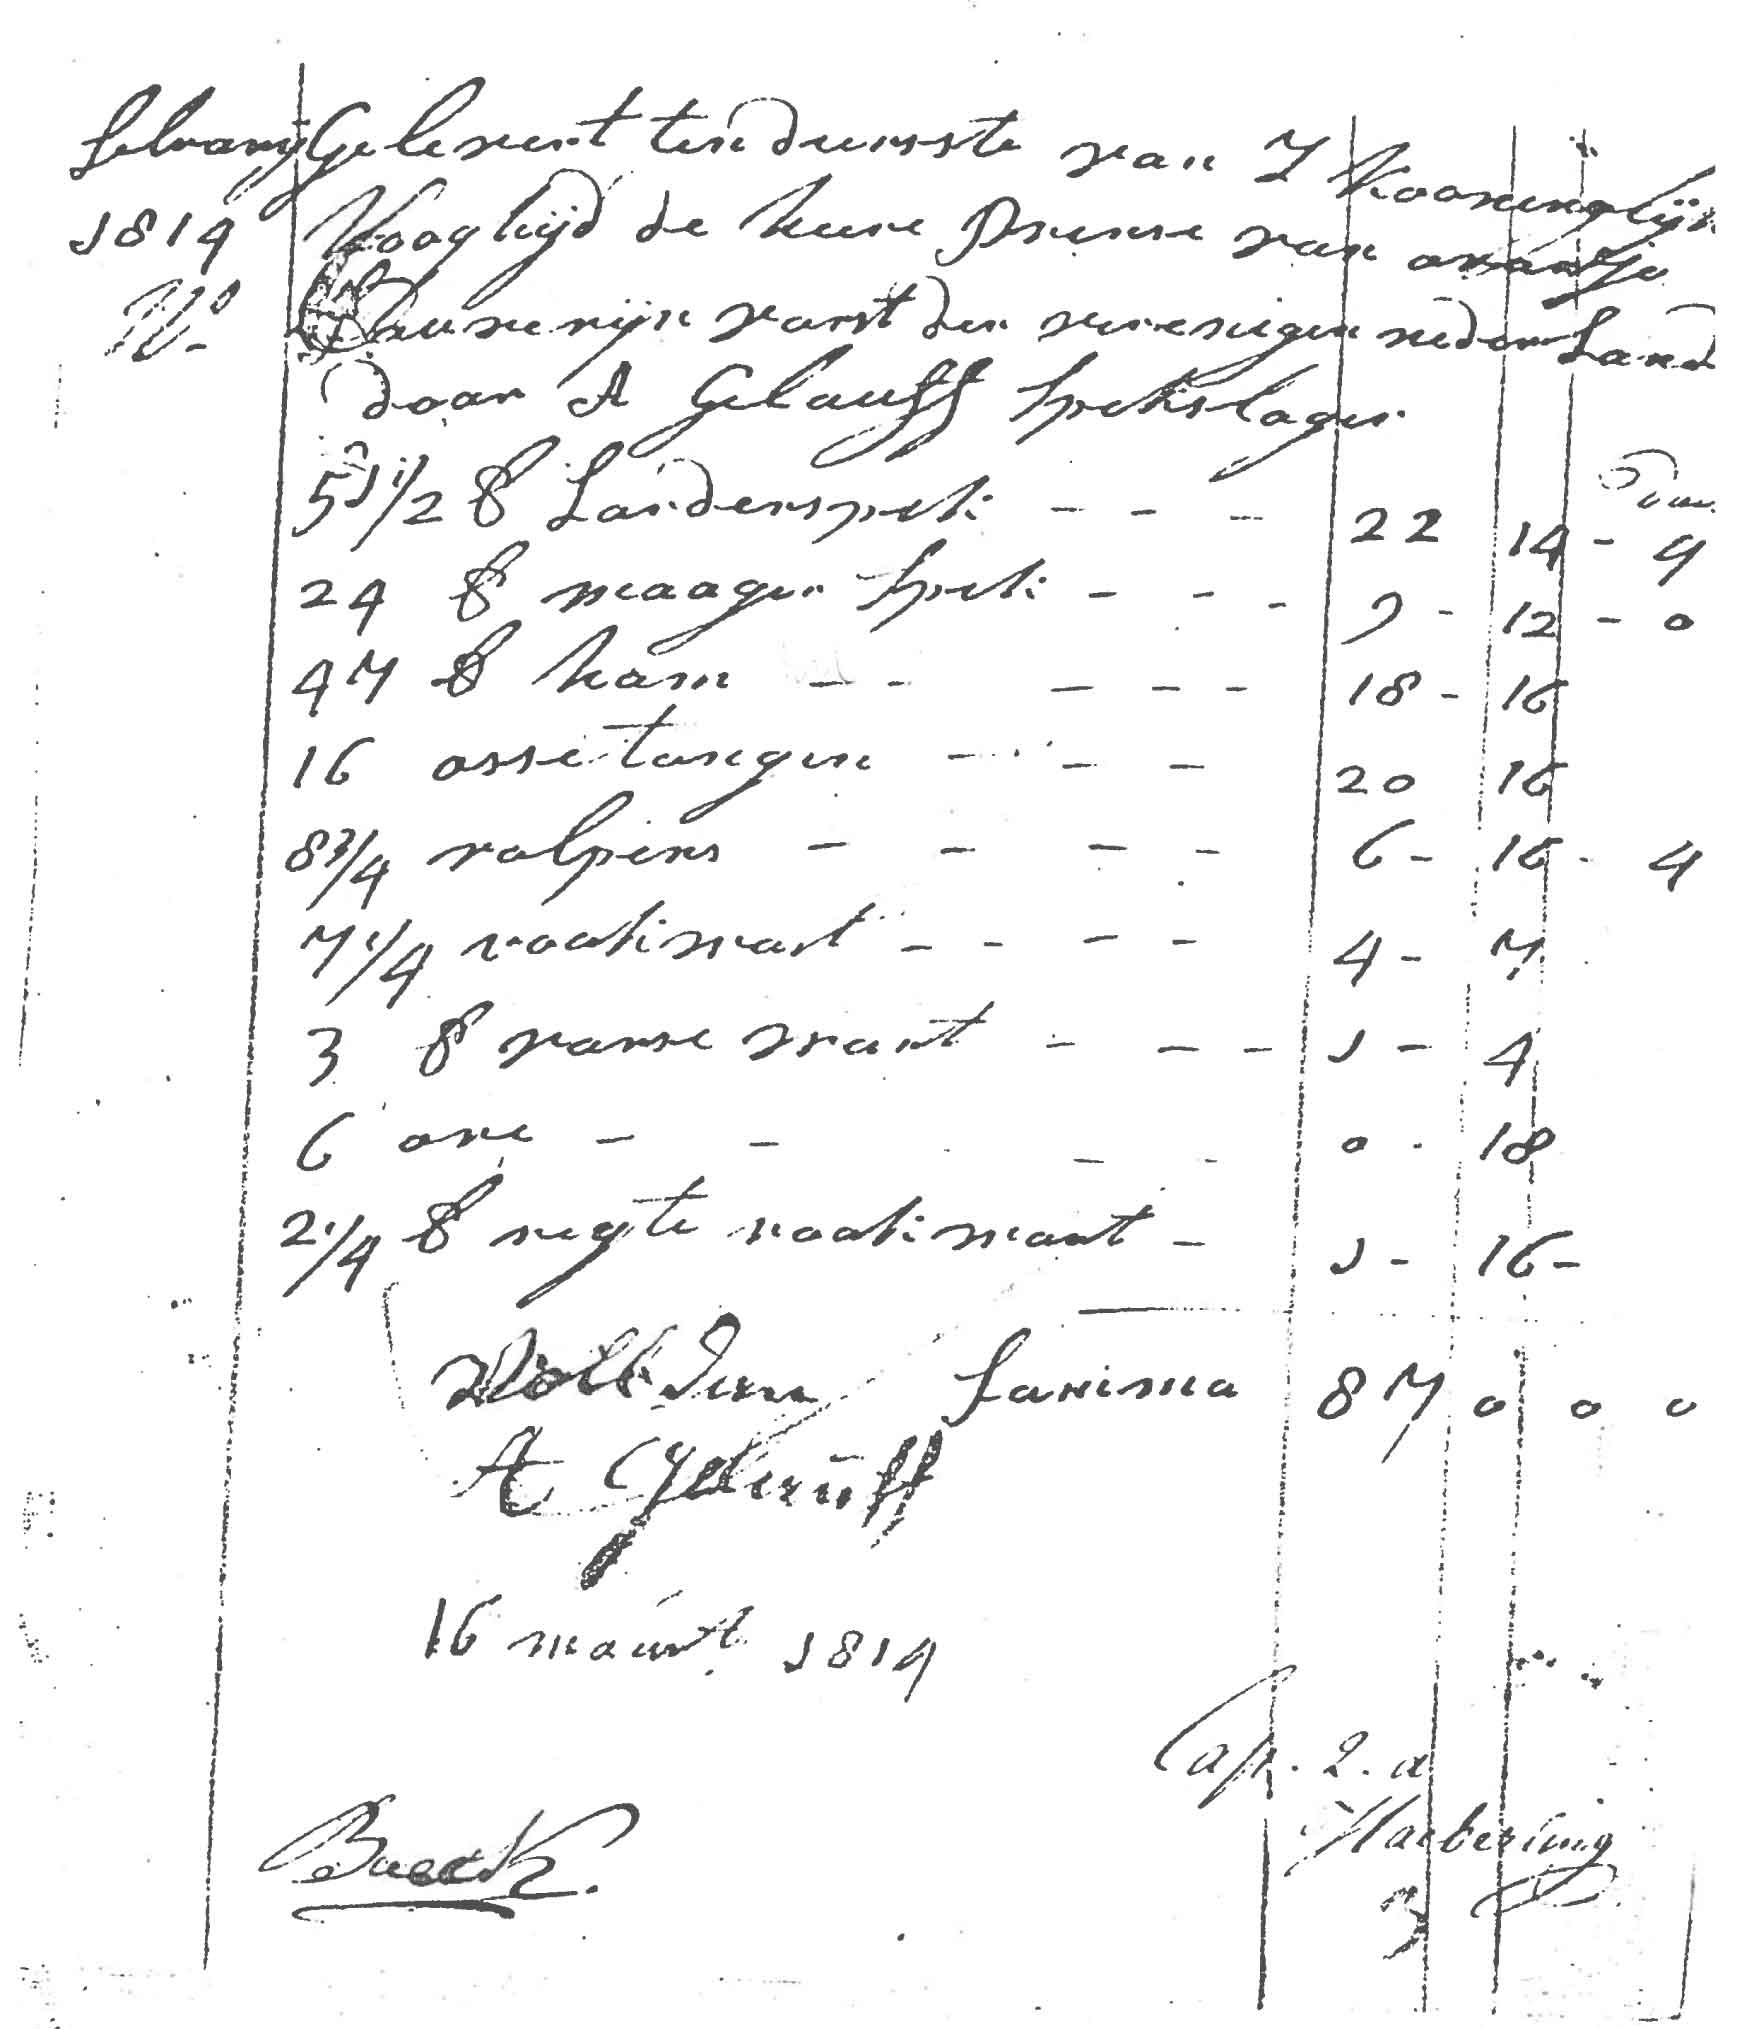 februarij Gelevert ten dienste van Z Kooninglijk
1814 Hoogheijd de heere Prinse van oranje
No Souverijn vorst der verenigen nederland
door A Gelauff spekslager
51 1/2 ℔ Landerspek - - - 22 14 - 4
24 ℔ maager spek - - - 9 - 12 - 0
47 ℔ ham - - - - - 18 - 16
16 ossetongen - - - 20 16
8 3/4 rolpens - - - - 6 - 16 - 4
7 1/4 rookworst - - - - 4 - 7
3 ℔ varse worst - - - 1 - 4
6 ore - - - - 0 - 18
2 1/4 ℔ regte rookworst - 1 - 16 -
Voldaan Somma 87 0 0 0
A Gelauff
16 maart 1814
Cap. 2. a
Haeberling
Baeck.
3